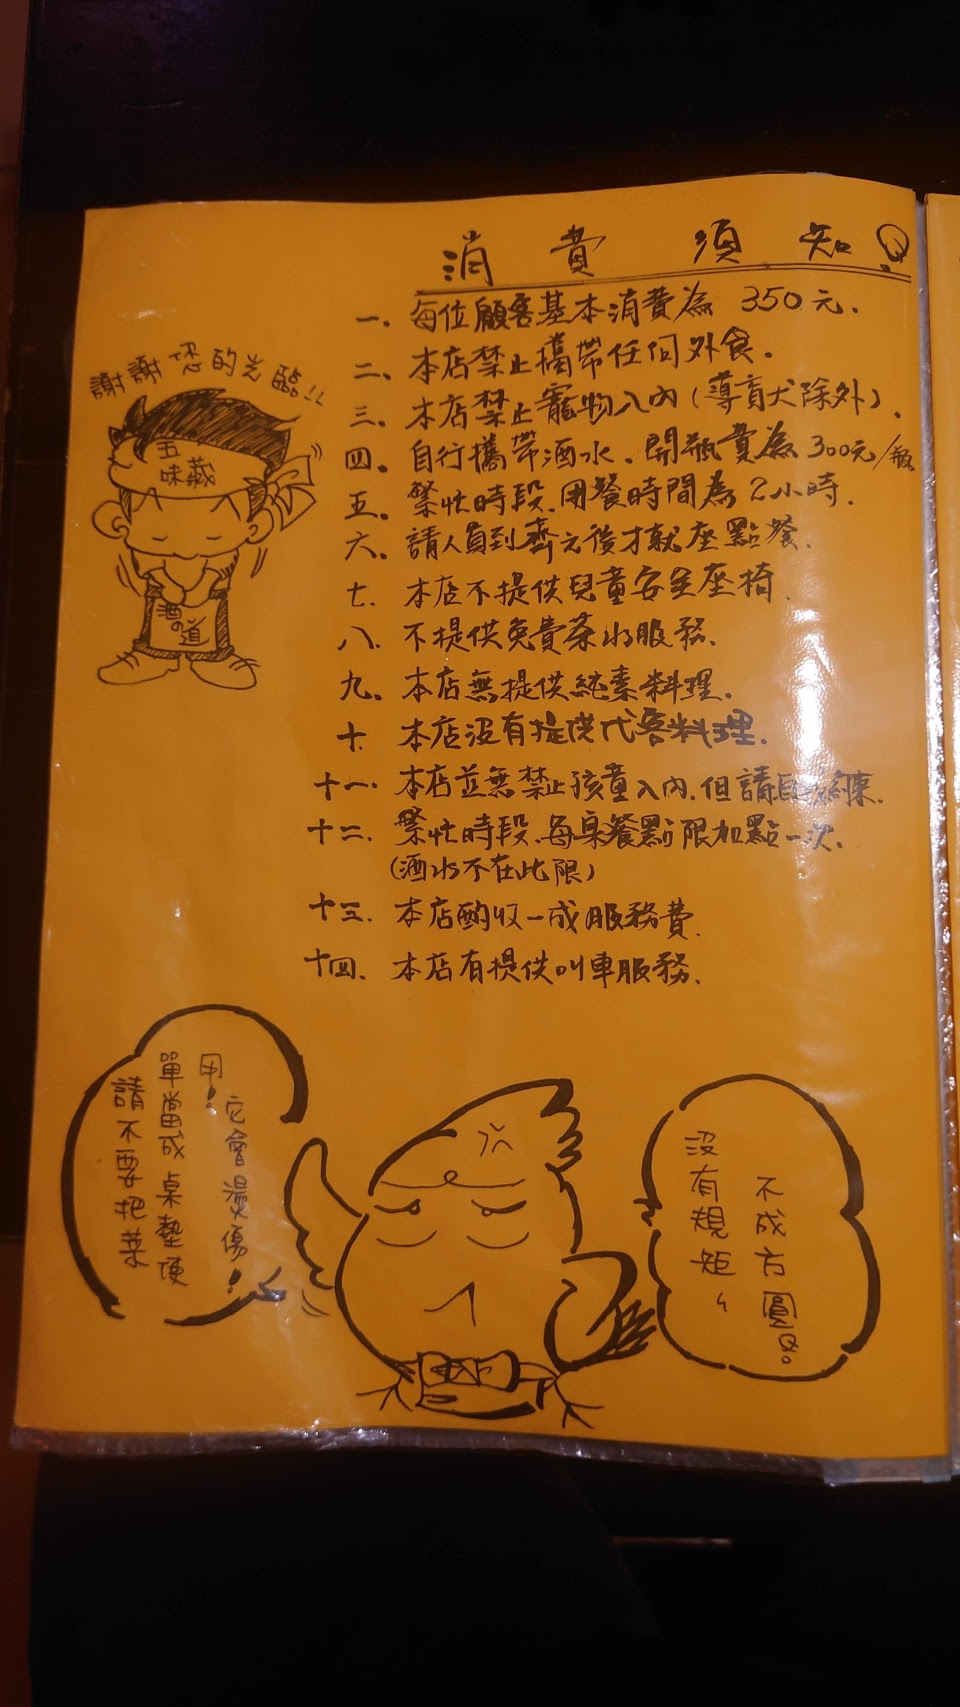 消費須知
一. 每位顧客基本消費為 350元.
二. 本店禁止攜帶任何外食.
三. 本店禁止寵物入內(導盲犬除外).
四. 自行攜帶酒水、開瓶費為300元/瓶
五. 繁忙時段、用餐時間為2小時.
六. 請人員到齊之後才就座點餐.
七. 本店不提供兒童安全座椅.
八. 不提供免費茶水服務.
九. 本店無提供純素料理.
十. 本店沒有提供代客料理.
十一. 本店並無禁止孩童入內.但請 約束.
十二. 繁忙時段.每桌餐點限加點一次.
(酒水不在此限)
十三. 本店酌收一成服務費.
十四. 本店有提供叫車服務.
謝謝您的光臨!!
五
味藏
酒の道
請不要把菜
單當成桌墊使
用!
它會燙傷!
沒有規矩
不成方圓